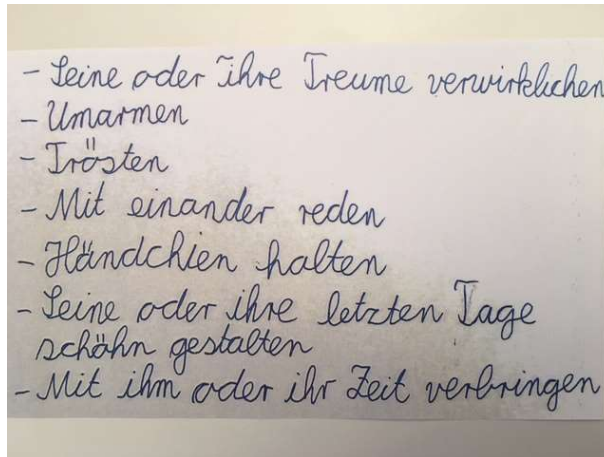 - Seine oder Ihre Treume verwirklichen
- Umarmen
- Trösten
- Mit einander reden
- Händchien halten
- Seine oder ihre letzten Tage
schöhn gestalten
- Mit ihm oder ihr Zeit verbringen